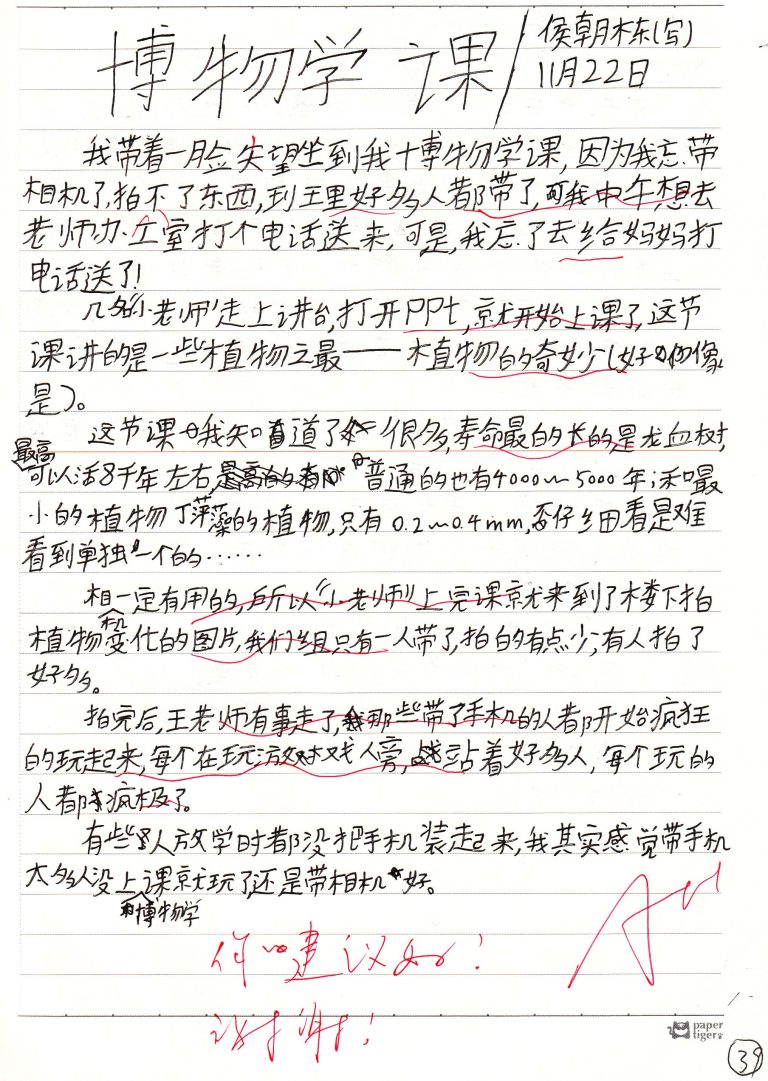 博物学课
侯朝栋(写)
11月22日
我带着一脸失望坐到我十博物学课,因为我忘带
相机了,拍不了东西,到班里好多人都带了,可我中午想去
老师办工室打个电话送来,可是,我忘了去给妈妈打
电话送了!
几名“小老师”走上讲台,打开PPt,就开始上课了,这节
课讲的是一些植物之最——植物的奇妙(好像
是)。
这节课我知道了很多,寿命最的长的是龙血树,
可以活8千年左右,普通的也有4000~5000年活,最
最高
小的植物丁萍藻的植物,只有0.2~0.4mm,不仔细看是难
看到单独一个的……
相机一定有用的,所以“小老师”上完课就来到了楼下拍
植物变化的图片,我们组只有一人带了,拍的有点少;有人拍了
好多。
拍完后,王老师有事走了,那些带了手机的人都开始疯狂
的玩起来,每个在玩游戏人旁,站着好多人,每个玩的
人都疯极了。
有些人放学时都没把手机装起来,我其实感觉带手机
太多人没上博物学课就玩了还是带相机好。
你的建议如!
谢谢!
A+
paper
tiger
39